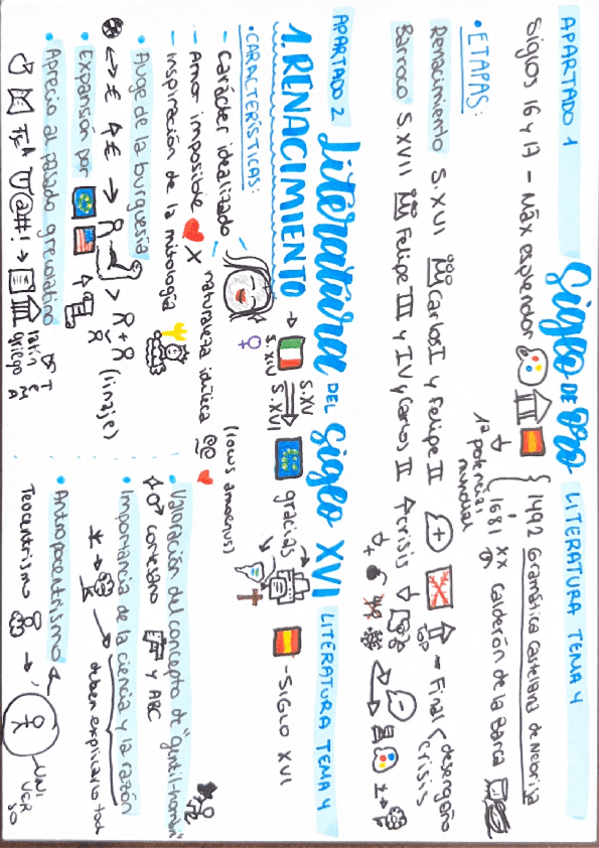 Siglo DE ORO
LITERATURA TEMA 4
APARTADO 1
Siglos 16 y 17 - Máx esplendor
1492 Gramática Castellana de Nebrija
1681 XX Calderón de la Barca
1ª potencia mundial
• ETAPAS:
Renacimiento S.XVI Carlos I y Felipe II + TOP - Final
Barroco S.XVII Felipe III y IV y Carlos II ↑ crisis ↓
desengaño
crisis
Literatura DEL siglo XVI
APARTADO 2
LITERATURA TEMA 4
1. RENACIMIENTO → S.XIV S.XV S.XVI gracias - SIGLO XVI
• CARACTERÍSTICAS:
- Carácter idealizado
- Amor imposible X naturaleza idílica
(locus amoenus)
- Inspiración de la mitología
• Auge de la burguesía
↔ € ↑ € → > + (linaje)
• Expansión por
• Aprecio al pasado grecolatino
TEMA @#! → latín griego TEMA
• Valoración del concepto de "gentil-hombre"
cortesano y ABC
• Importancia de la ciencia y la razón
deben explicarlo todo
• Antropocentrismo
Teocentrismo → UNIVERSO